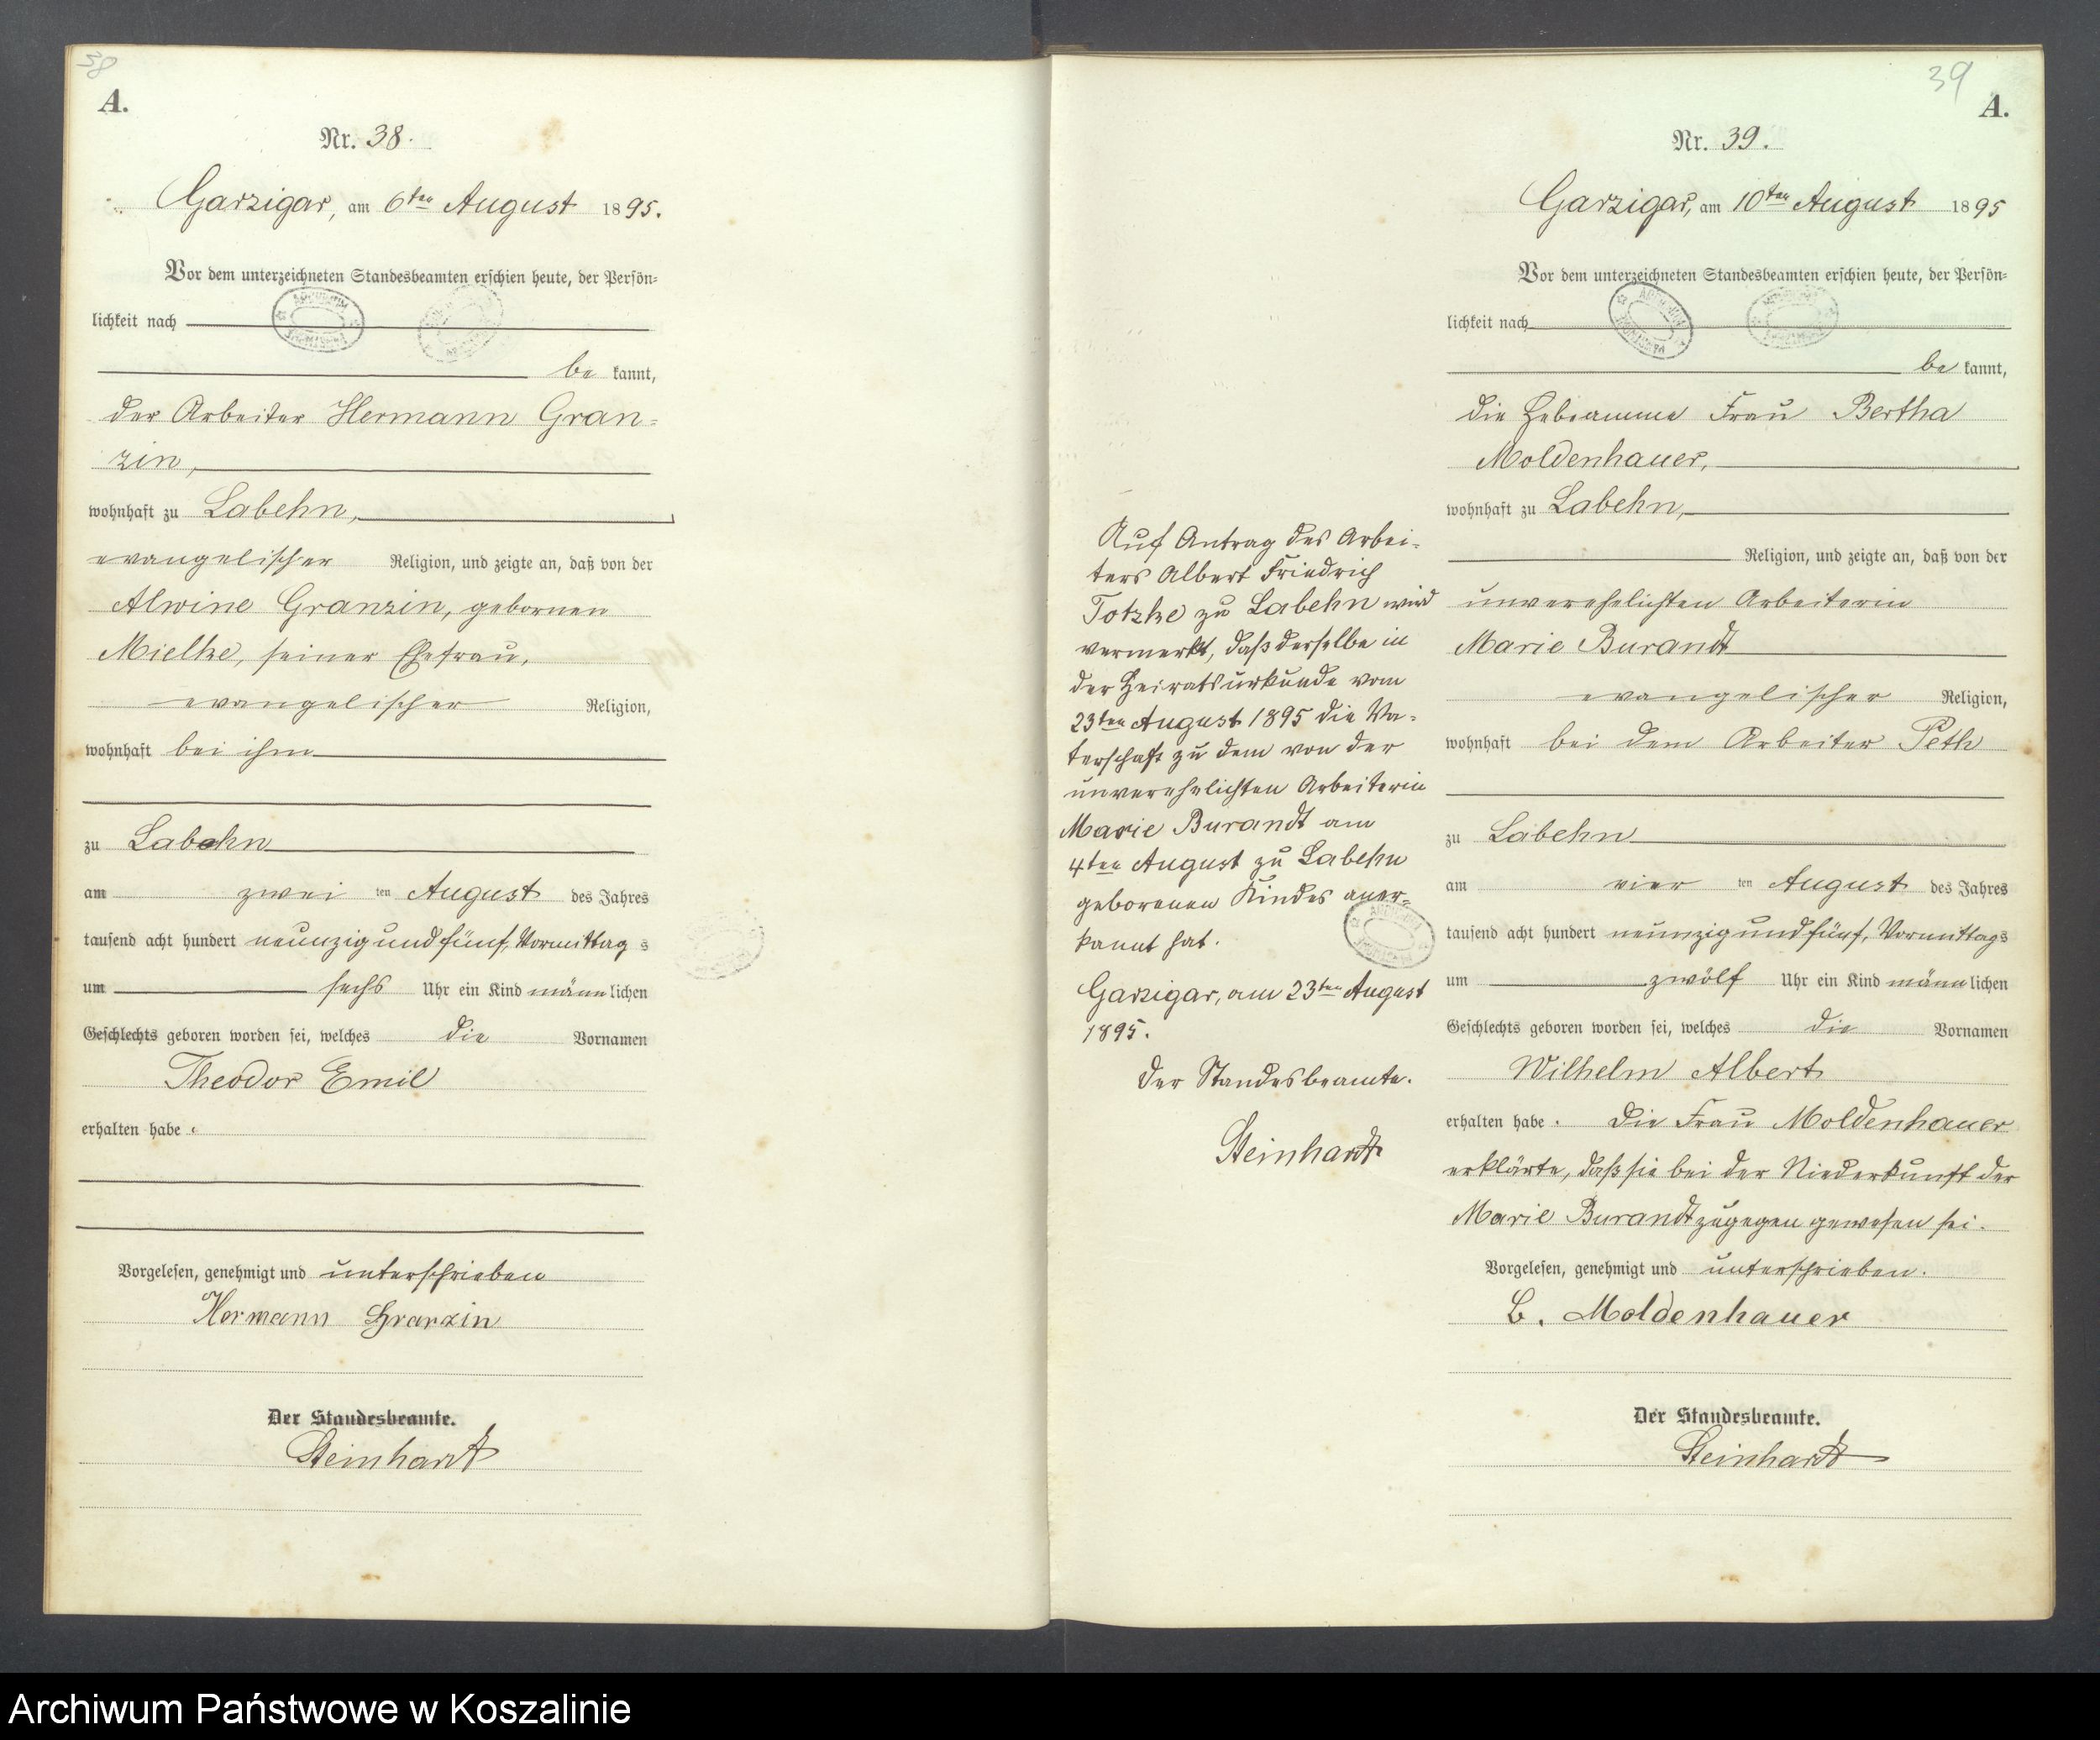 38
A.
Nr. 38.
Garzigar, am 6ten August 1895.
Vor dem unterzeichneten Standesbeamten erschien heute, der Persön=
lichkeit nach
be kannt,
der Arbeiter Hermann Gran=
zin,
wohnhaft zu Labehn,
evangelischer Religion, und zeigte an, daß von der
Alwine Granzin, gebornen
Mielke, seiner Ehefrau,
evangelischer Religion,
wohnhaft bei ihm
zu Labehn
am zwei ten August des Jahres
tausend acht hundert neunzig und fünf, Vormittag s
um sechs Uhr ein Kind männlichen
Geschlechts geboren worden sei, welches die Vornamen
Theodor Emil
erhalten habe.
Vorgelesen, genehmigt und unterschrieben
Hermann Granzin
Der Standesbeamte.
Steinhardt
39
A.
Nr. 39.
Garzigar, am 10ten August 1895
Vor dem unterzeichneten Standesbeamten erschien heute, der Persön=
lichkeit nach
be kannt,
die Hebeamme Frau Bertha
Moldenhauer,
wohnhaft zu Labehn,
Religion, und zeigte an, daß von der
unverehelichten Arbeiterin
Marie Burandt
evangelischer Religion,
wohnhaft bei dem Arbeiter Peth
zu Labehn
am vier ten August des Jahres
tausend acht hundert neunzig und fünf, Vormittags
um zwölf Uhr ein Kind männlichen
Geschlechts geboren worden sei, welches die Vornamen
Wilhelm Albert
erhalten habe. Die Frau Moldenhauer
erklärte, daß sie bei der Niederkunft der
Marie Burandt zugegen gewesen sei.
Vorgelesen, genehmigt und unterschrieben.
B. Moldenhauer
Der Standesbeamte.
Steinhardt
Auf Antrag des Arbei=
ters Albert Friedrich
Totzke zu Labehn wird
vermerkt, daß derselbe in
der Heiratsurkunde vom
23ten August 1895 die Va=
terschaft zu dem von der
unverehelichten Arbeiterin
Marie Burandt am
4ten August zu Labehn
geborenen Kindes aner=
kannt hat.
Garzigar, am 23ten August
1895.
Der Standesbeamte.
Steinhardt
Archiwum Państwowe w Koszalinie